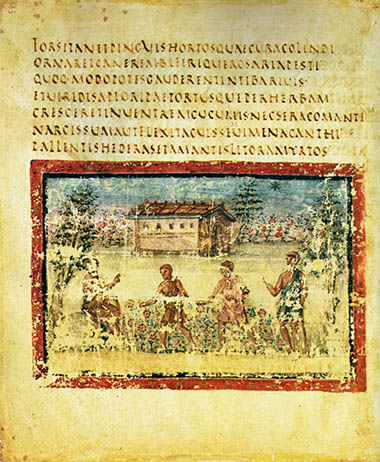 FORSITANETPINGUISHORTOSQUAECURACOLENDI
ORNARETCANEREMBIFERIQUEROSARIAPESTI
QUOQ·MODOPOTISGAUDERENTINTIBARIUIS
ETUIRIDISAPIORIPAETORTUSQUEPERHERBAM
CRESCERETINUENTREMCUCUMISNECSERACOMANTE
NARCISSUMAUTFLEXITACUISSEUIMENACANTHI
PALLENTISHEDERASETAMANTISLITORAMYRTOS